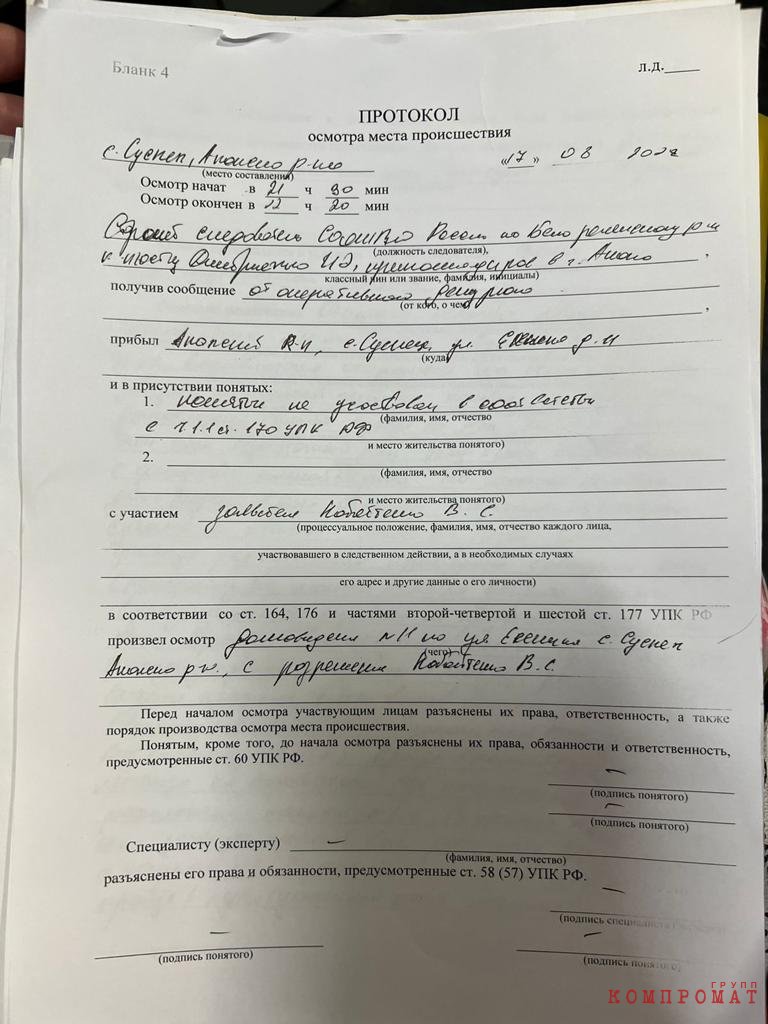 Бланк 4
Л.Д.
ПРОТОКОЛ
осмотра места происшествия
с. Суспех, р-на
«17» 08
(место составления)
Осмотр начат в 21 ч мин
Осмотр окончен в 22 ч 20 мин
следователь России по
(должность следователя),
в г. Анапа,
классный чин или звание, фамилия, инициалы)
получив сообщение от оперативного дежурного
(от кого, о чем)
,
прибыл Анапский р-н, с. ул.
(куда)
и в присутствии понятых:
1. понятые не участвовали в соответствии
(фамилия, имя, отчество
с ч. 1.1 ст. 170 УПК РФ
и место жительства понятого)
2.
(фамилия, имя, отчество
и место жительства понятого)
с участием заявителя В. С.
(процессуальное положение, фамилия, имя, отчество каждого лица,
участвовавшего в следственном действии, а в необходимых случаях
его адрес и другие данные о его личности)
в соответствии со ст. 164, 176 и частями второй-четвертой и шестой ст. 177 УПК РФ
произвел осмотр домовладения №11 по ул. с.
(чего)
р-на, с разрешения В. С.
Перед началом осмотра участвующим лицам разъяснены их права, ответственность, а также
порядок производства осмотра места происшествия.
Понятым, кроме того, до начала осмотра разъяснены их права, обязанности и ответственность,
предусмотренные ст. 60 УПК РФ.
(подпись понятого)
(подпись понятого)
Специалисту (эксперту)
(фамилия, имя, отчество)
разъяснены его права и обязанности, предусмотренные ст. 58 (57) УПК РФ.
(подпись специалиста
(подпись понятого)
(подпись понятого)
ГРУПП
КОМПРОМАТ